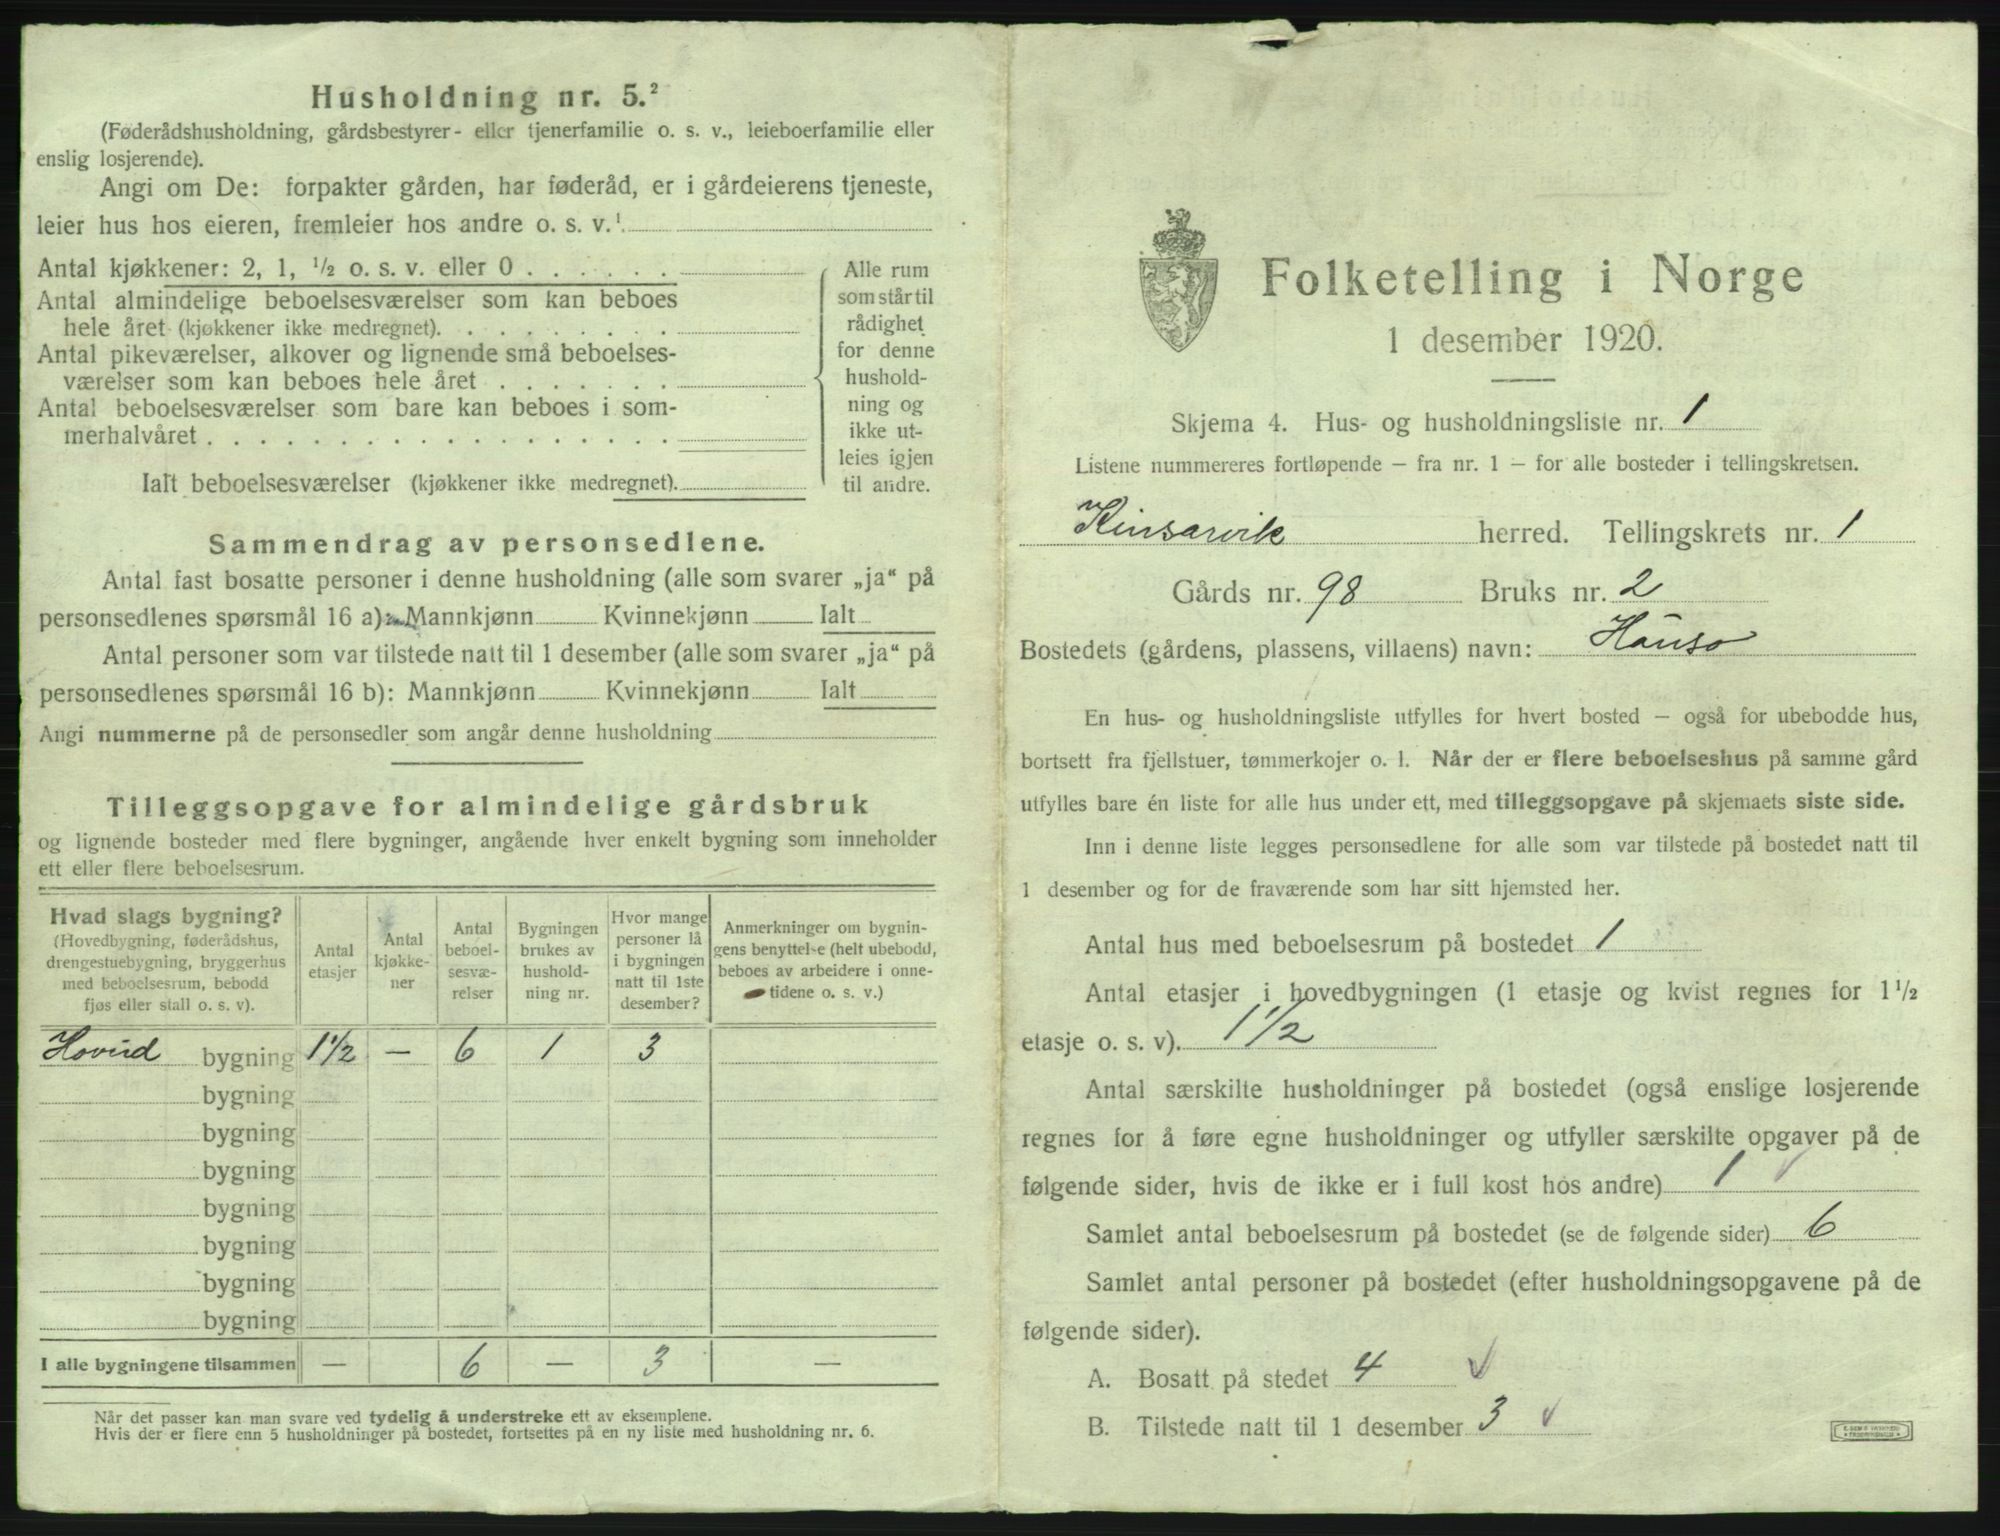 Husholdning nr. 5.²
(Føderådshusholdning, gårdsbestyrer- eller tjenerfamilie o. s. v., leieboerfamilie eller
enslig losjerende).
Angi om De: forpakter gården, har føderåd, er i gårdeierens tjeneste,
leier hus hos eieren, fremleier hos andre o. s. v.¹
Antal kjøkkener: 2, 1, ½ o. s. v. eller 0 . . . . . .
Antal almindelige beboelsesværelser som kan beboes
hele året (kjøkkener ikke medregnet). . . . . . . . .
Antal pikeværelser, alkover og lignende små beboelses-
værelser som kan beboes hele året . . . . . . .
Antal beboelsesværelser som bare kan beboes i som-
merhalvåret . . . . . . . . . . . . . . . . . .
Ialt beboelsesværelser (kjøkkener ikke medregnet).
Alle rum
som står til
rådighet
for denne
hushold-
ning og
ikke ut-
leies igjen
til andre.
Sammendrag av personsedlene.
Antal fast bosatte personer i denne husholdning (alle som svarer „ja“ på
personsedlenes spørsmål 16 a): Mannkjønn Kvinnekjønn Ialt
Antal personer som var tilstede natt til 1 desember (alle som svarer „ja“ på
personsedlenes spørsmål 16 b): Mannkjønn Kvinnekjønn Ialt
Angi nummerne på de personsedler som angår denne husholdning
Tilleggsopgave for almindelige gårdsbruk
og lignende bosteder med flere bygninger, angående hver enkelt bygning som inneholder
ett eller flere beboelsesrum.
Hvad slags bygning?
(Hovedbygning, føderådshus,
drengestuebygning, bryggerhus
med beboelsesrum, bebodd
fjøs eller stall o. s. v).
Antal
etasjer
Antal
kjøkke-
ner
Antal
beboel-
sesvæ-
relser
Bygningen
brukes av
hushold-
ning nr.
Hvor mange
personer lå
i bygningen
natt til 1ste
desember?
Anmerkninger om bygnin-
gens benyttelse (helt ubebodd,
beboes av arbeidere i onne-
tidene o. s. v.)
Hoved bygning 1½ — 6 1 3
bygning
bygning
bygning
bygning
bygning
bygning
bygning
I alle bygningene tilsammen — 6 — 3 —
Når det passer kan man svare ved tydelig å understreke ett av eksemplene.
Hvis der er flere enn 5 husholdninger på bostedet, fortsettes på en ny liste med husholdning nr. 6.
Folketelling i Norge
1 desember 1920.
Skjema 4. Hus- og husholdningsliste nr. 1
Listene nummereres fortløpende – fra nr. 1 – for alle bosteder i tellingskretsen.
Kinsarvik herred. Tellingskrets nr. 1
Gårds nr. 98 Bruks nr. 2
Bostedets (gårdens, plassens, villaens) navn: Hauso
En hus- og husholdningsliste utfylles for hvert bosted – også for ubebodde hus,
bortsett fra fjellstuer, tømmerkojer o. l. Når der er flere beboelseshus på samme gård
utfylles bare én liste for alle hus under ett, med tilleggsopgave på skjemaets siste side.
Inn i denne liste legges personsedlene for alle som var tilstede på bostedet natt til
1 desember og for de fraværende som har sitt hjemsted her.
Antal hus med beboelsesrum på bostedet 1
Antal etasjer i hovedbygningen (1 etasje og kvist regnes for 1½
etasje o. s. v). 1½
Antal særskilte husholdninger på bostedet (også enslige losjerende
regnes for å føre egne husholdninger og utfyller særskilte opgaver på de
følgende sider, hvis de ikke er i full kost hos andre) 1
Samlet antal beboelsesrum på bostedet (se de følgende sider) 6
Samlet antal personer på bostedet (efter husholdningsopgavene på de
følgende sider).
A. Bosatt på stedet 4
B. Tilstede natt til 1 desember 3